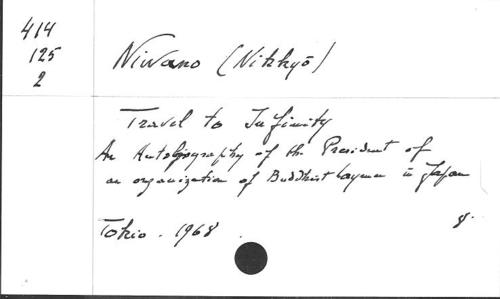 414
125
2
Niwano (Nikkyō)
Travel to Infinity
An Autobiography of the President of
an organization of Buddhist laymen in Japan
Tokio. 1968.
8.